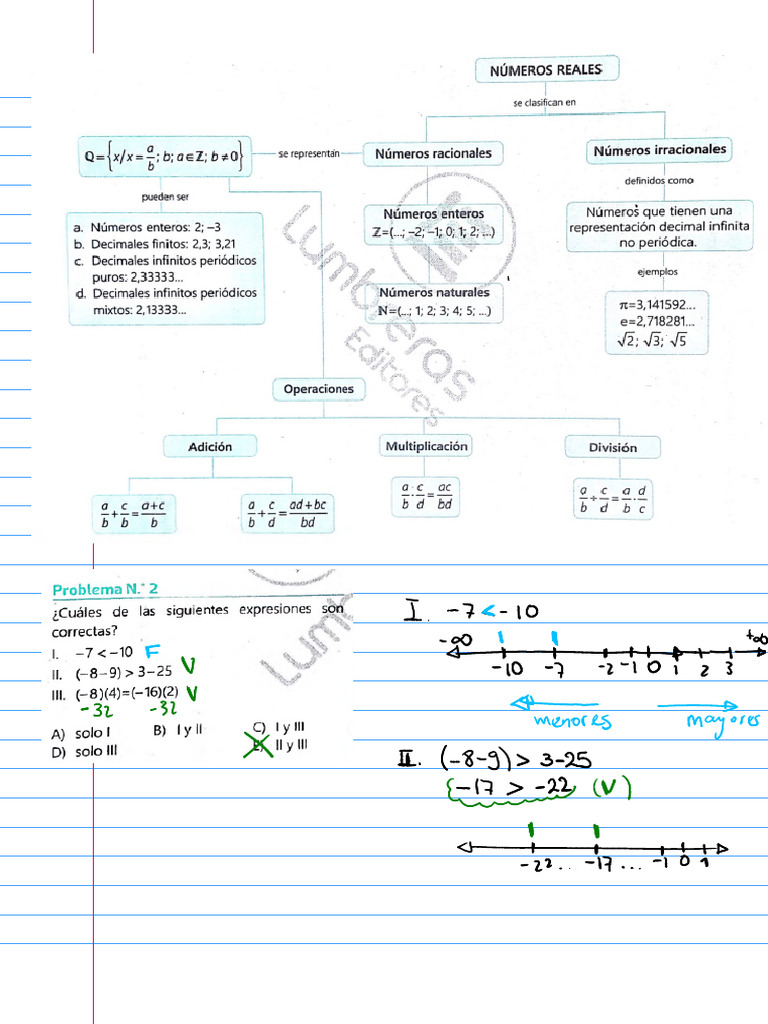 NÚMEROS REALES
se clasifican en
Q={x/x=a/b; b; a∈Z; b≠0}
se representan
Números racionales
Números irracionales
pueden ser
definidos como
a. Números enteros: 2; –3
b. Decimales finitos: 2,3; 3,21
c. Decimales infinitos periódicos
puros: 2,33333...
d. Decimales infinitos periódicos
mixtos: 2,13333...
Números enteros
Z=(...; –2; –1; 0; 1; 2; ...)
Números que tienen una
representación decimal infinita
no periódica.
ejemplos
Números naturales
N=(...; 1; 2; 3; 4; 5; ...)
π=3,141592...
e=2,718281...
√2; √3; √5
Lumbreras
Editores
Operaciones
Adición
Multiplicación
División
a/b + c/b = a+c/b
a/b + c/d = ad+bc/bd
a/b · c/d = ac/bd
a/b ÷ c/d = a/b · d/c
Problema N.° 2
¿Cuáles de las siguientes expresiones son
correctas?
I. –7 < –10 F
II. (–8–9) > 3–25 V
III. (–8)(4)=(–16)(2) V
-32 -32
A) solo I B) I y II C) I y III
D) solo III E) II y III
Lumb
I. -7 < -10
-∞ +∞
-10 -7 -2 -1 0 1 2 3
menores mayores
II. (-8-9) > 3-25
-17 > -22 (V)
-22 .. -17 ... -1 0 1